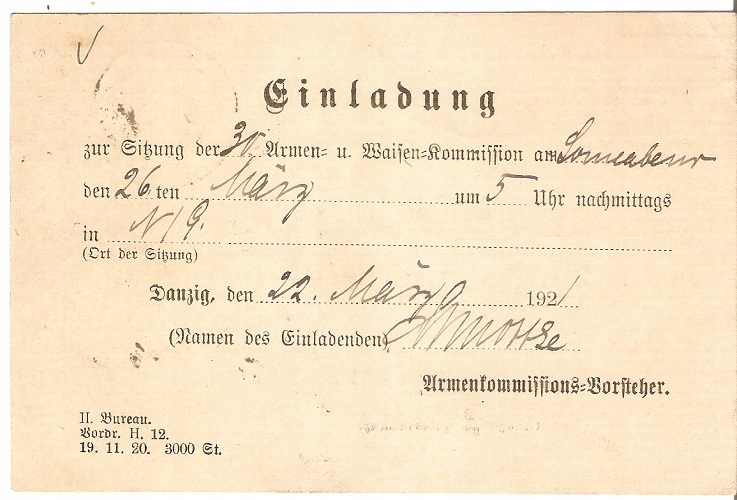 Einladung
zur Sitzung der 30. Armen- u. Waisen-Kommission am Sonnabend
den 26 ten März um 5 Uhr nachmittags
in N/9.
(Ort der Sitzung)
Danzig, den 22. März 1921
(Namen des Einladenden)
Armenkommissions-Vorsteher.
II. Bureau.
Vordr. H. 12.
19. 11. 20. 3000 St.